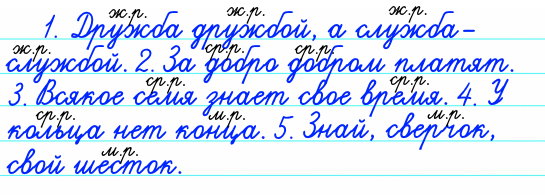 ж.р. ж.р. ж.р.
1. Дружба дружбой, а служба–
ж.р. ср.р. ср.р.
службой. 2. За добро добром платят.
ср.р. ср.р.
3. Всякое семя знает свое время. 4. У
ср.р. м.р.
кольца нет конца. 5. Знай, сверчок,
м.р.
м.р.
свой шесток.